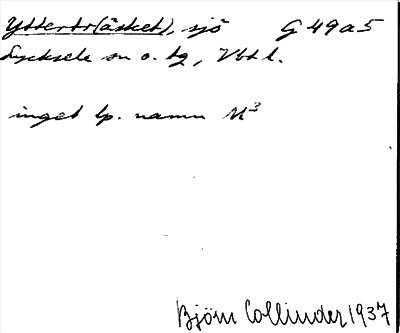 Yttertr(äsket), sjö G 49a5
Lycksele sn o. tg, Vbtl.
inget lp. namn M³
Björn Collinder 1937